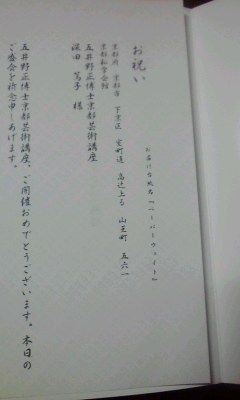 お祝い
お届け台紙名『ペーパーウェイト』
京都府 京都市 下京区 室町通 高辻上る 山王町 五六一
京都私学会館
五井野正博士京都芸術講座
深田 篤子 様
五井野正博士京都芸術講座、ご開催おめでとうございます。本日の
ご盛会を祈念申しあげます。